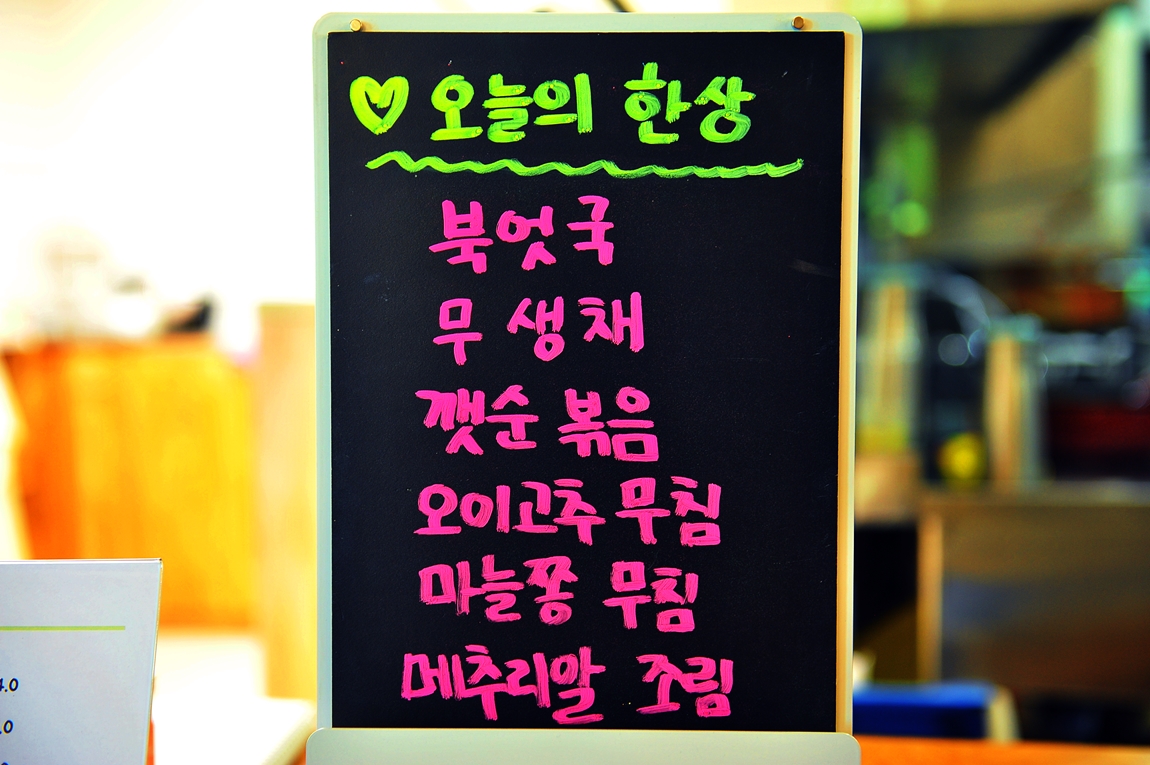 ♡ 오늘의 한상
북엇국
무생채
깻순 볶음
오이고추 무침
마늘쫑 무침
메추리알 조림
4.0
.0